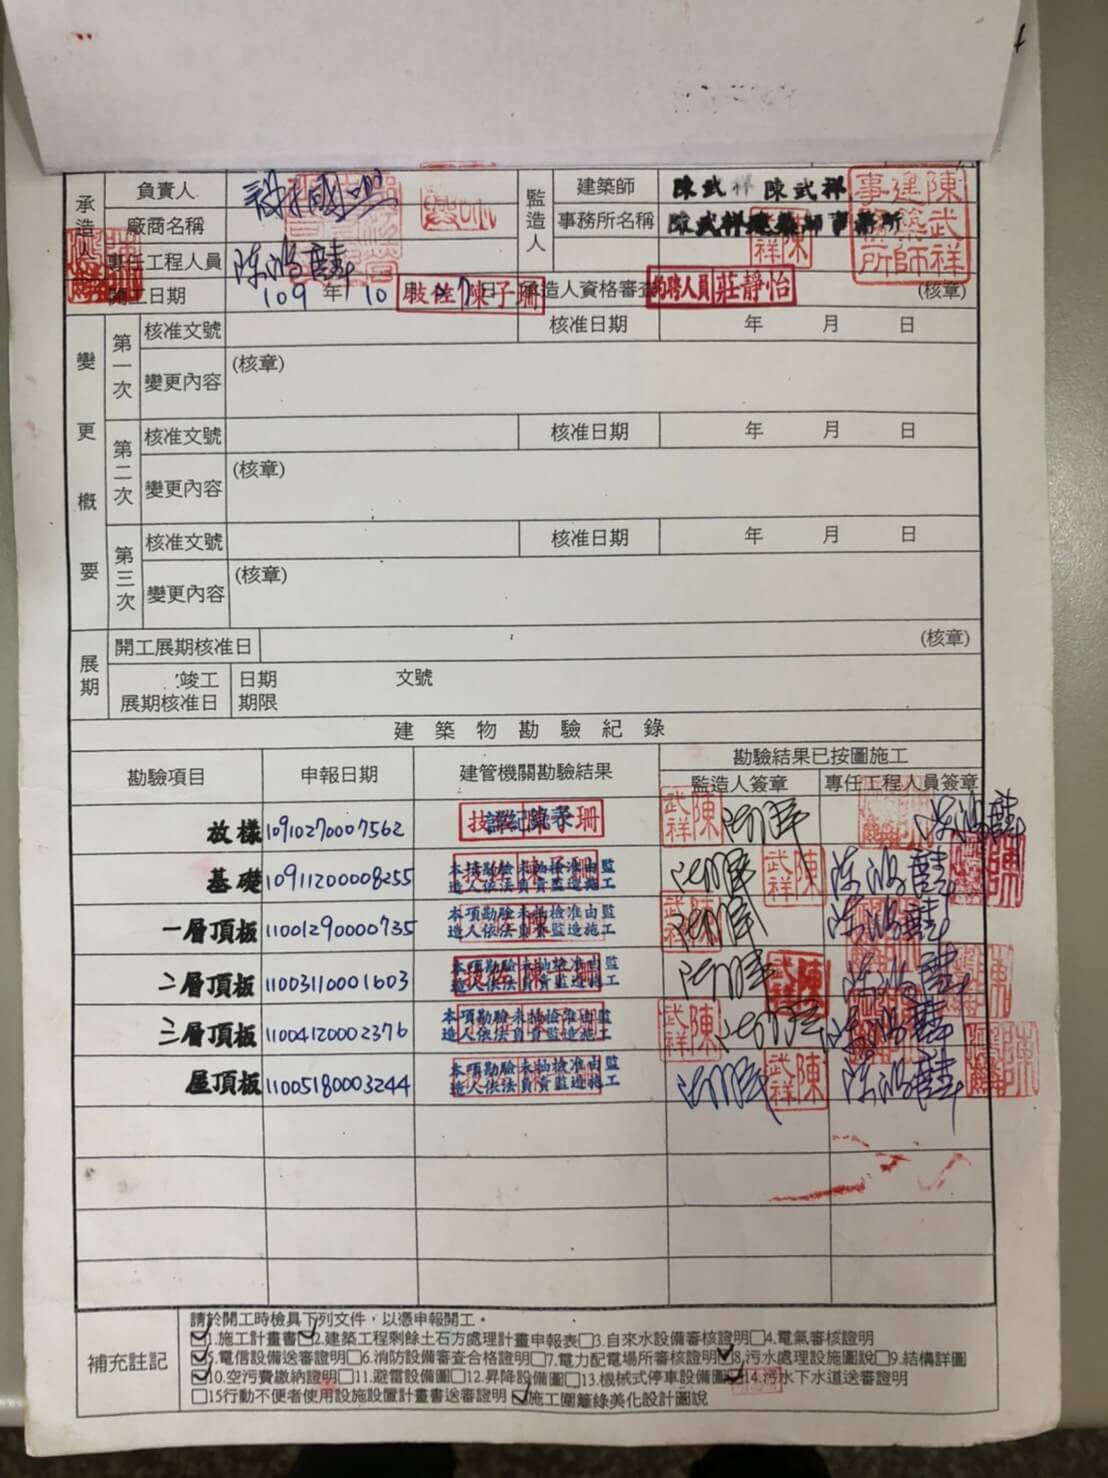 承造人 負責人 監造人 建築師 陳武祥 陳武祥
廠商名稱 事務所名稱 陳武祥建築師事務所
陳武祥建築師事務所
陳武祥
專任工程人員
開工日期 109 年 10 月 7 日 技佐 陳子珊 承造人資格審查 約聘人員 莊靜怡 (核章)
變更概要
第一次 核准文號 核准日期 年 月 日
變更內容 (核章)
第二次 核准文號 核准日期 年 月 日
變更內容 (核章)
第三次 核准文號 核准日期 年 月 日
變更內容 (核章)
展期 開工展期核准日 (核章)
竣工展期核准日 日期 文號
期限
建築物勘驗紀錄
勘驗項目 申報日期 建管機關勘驗結果 勘驗結果已按圖施工
監造人簽章 專任工程人員簽章
放樣 10910270007562 陳武祥
基礎 10911200008255 本項勘驗未抽檢准由監造人依法負責監造施工 陳武祥
一層頂板 11001290000735 本項勘驗未抽檢准由監造人依法負責監造施工
二層頂板 11003110001603 本項勘驗未抽檢准由監造人依法負責監造施工 陳武祥
三層頂板 11004120002376 本項勘驗未抽檢准由監造人依法負責監造施工 陳武祥
屋頂板 11005180003244 本項勘驗未抽檢准由監造人依法負責監造施工 陳武祥
補充註記
請於開工時檢具下列文件，以憑申報開工。
☑1.施工計畫書☑2.建築工程剩餘土石方處理計畫申報表□3.自來水設備審核證明□4.電氣審核證明
☑5.電信設備送審證明□6.消防設備審查合格證明□7.電力配電場所審核證明☑8.污水處理設施圖說□9.結構詳圖
☑10.空污費繳納證明□11.避雷設備圖□12.昇降設備圖□13.機械式停車設備圖☑14.污水下水道送審證明
□15行動不便者使用設施設置計畫書送審證明 ☑施工圍籬綠美化設計圖說